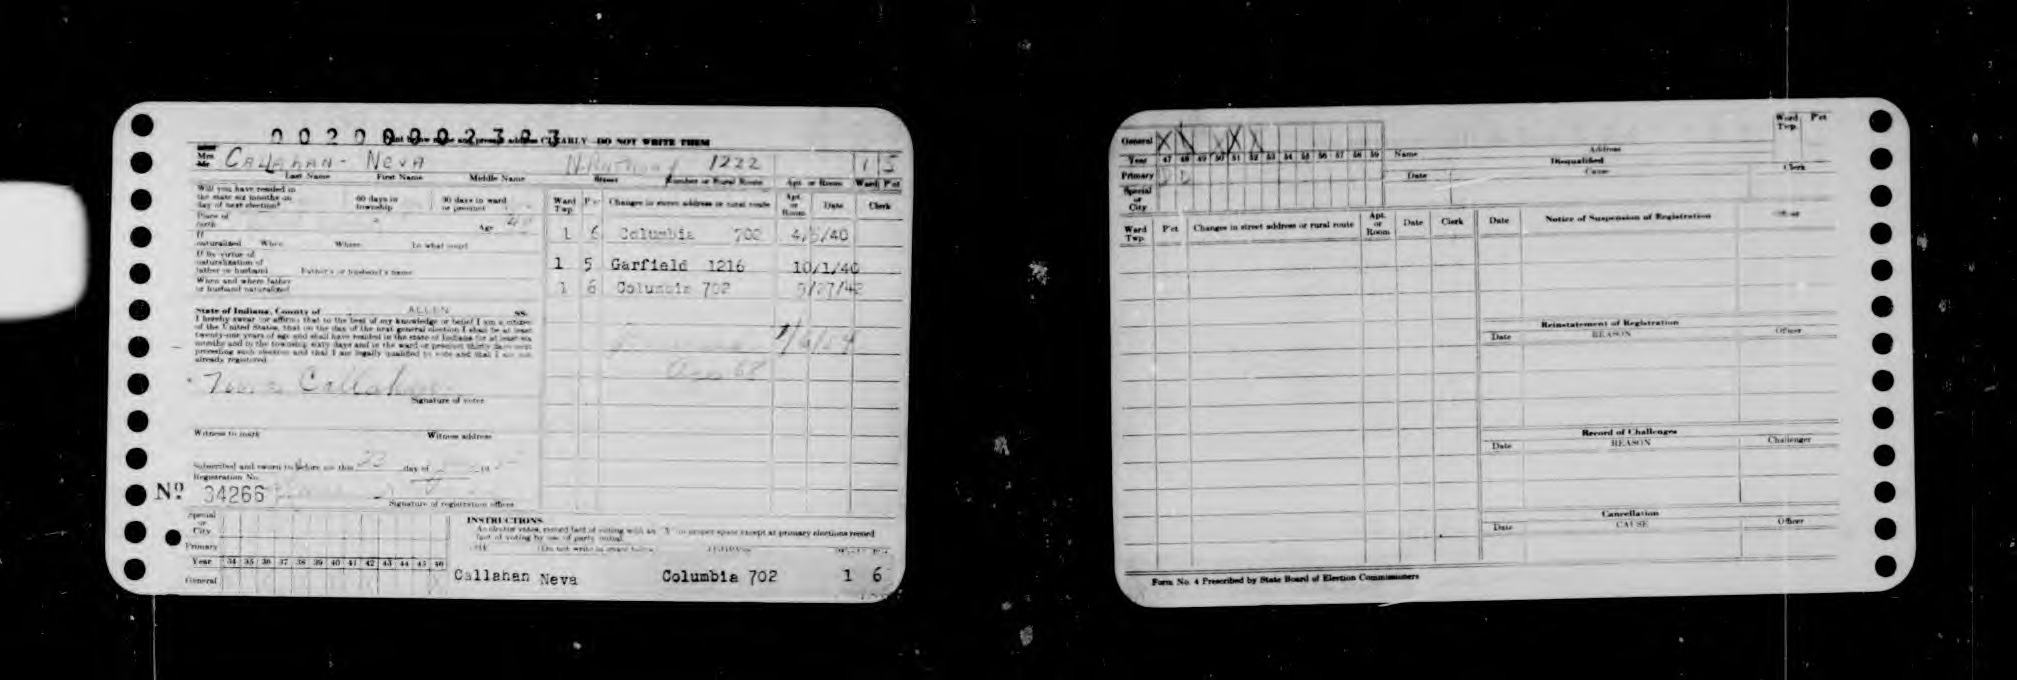 00200002303
Print below name and present address CLEARLY—DO NOT WRITE THEM
Mrs
Mr CALLAHAN - NEVA 1222 1 5
Last Name First Name Middle Name Street Number or Rural Route Apt. or Room Ward Pct
Will you have resided in
the state six months on
day of next election? 60 days in
township 30 days in ward
or precinct
Place of
birth Age
If
naturalized When Where In what court
If by virtue of
naturalization of
father or husband Father's or husband's name
When and where father
or husband naturalized
State of Indiana, County of ALLEN ss.
I hereby swear (or affirm) that to the best of my knowledge or belief I am a citizen
of the United States, that on the day of the next general election I shall be at least
twenty-one years of age and shall have resided in the state of Indiana for at least six
months and in the township sixty days and in the ward or precinct thirty days next
preceding such election and that I am legally qualified to vote and that I am not
already registered.
Neva Callahan
Signature of voter
Witness to mark Witness address
Subscribed and sworn to before me this 23 day of 19
Registration No.
Nº 34266
Signature of registration officer
Ward
Twp. Pct Changes in street address or rural route Apt.
or
Room Date Clerk
1 6 Columbia 702 4/5/40
1 5 Garfield 1216 10/1/40
1 6 Columbia 702 9/27/42
Special
or
City
Primary
Year 34 35 36 37 38 39 40 41 42 43 44 45 46
General
INSTRUCTIONS
An elector votes, record fact of voting with an "X" in proper space except at primary elections record
fact of voting by use of party initial.
(Do not write in space below)
Callahan Neva Columbia 702 1 6
General X X X X
Year 47 48 49 50 51 52 53 54 55 56 57 58 59
Primary D D
Special
or
City
Name Address
Disqualified
Date Cause Clerk
Ward
Twp. Pct
Ward
Twp. Pct Changes in street address or rural route Apt.
or
Room Date Clerk
Date Notice of Suspension of Registration Officer
Reinstatement of Registration
Date REASON Officer
Record of Challenges
Date REASON Challenger
Cancellation
Date CAUSE Officer
Form No. 4 Prescribed by State Board of Election Commissioners